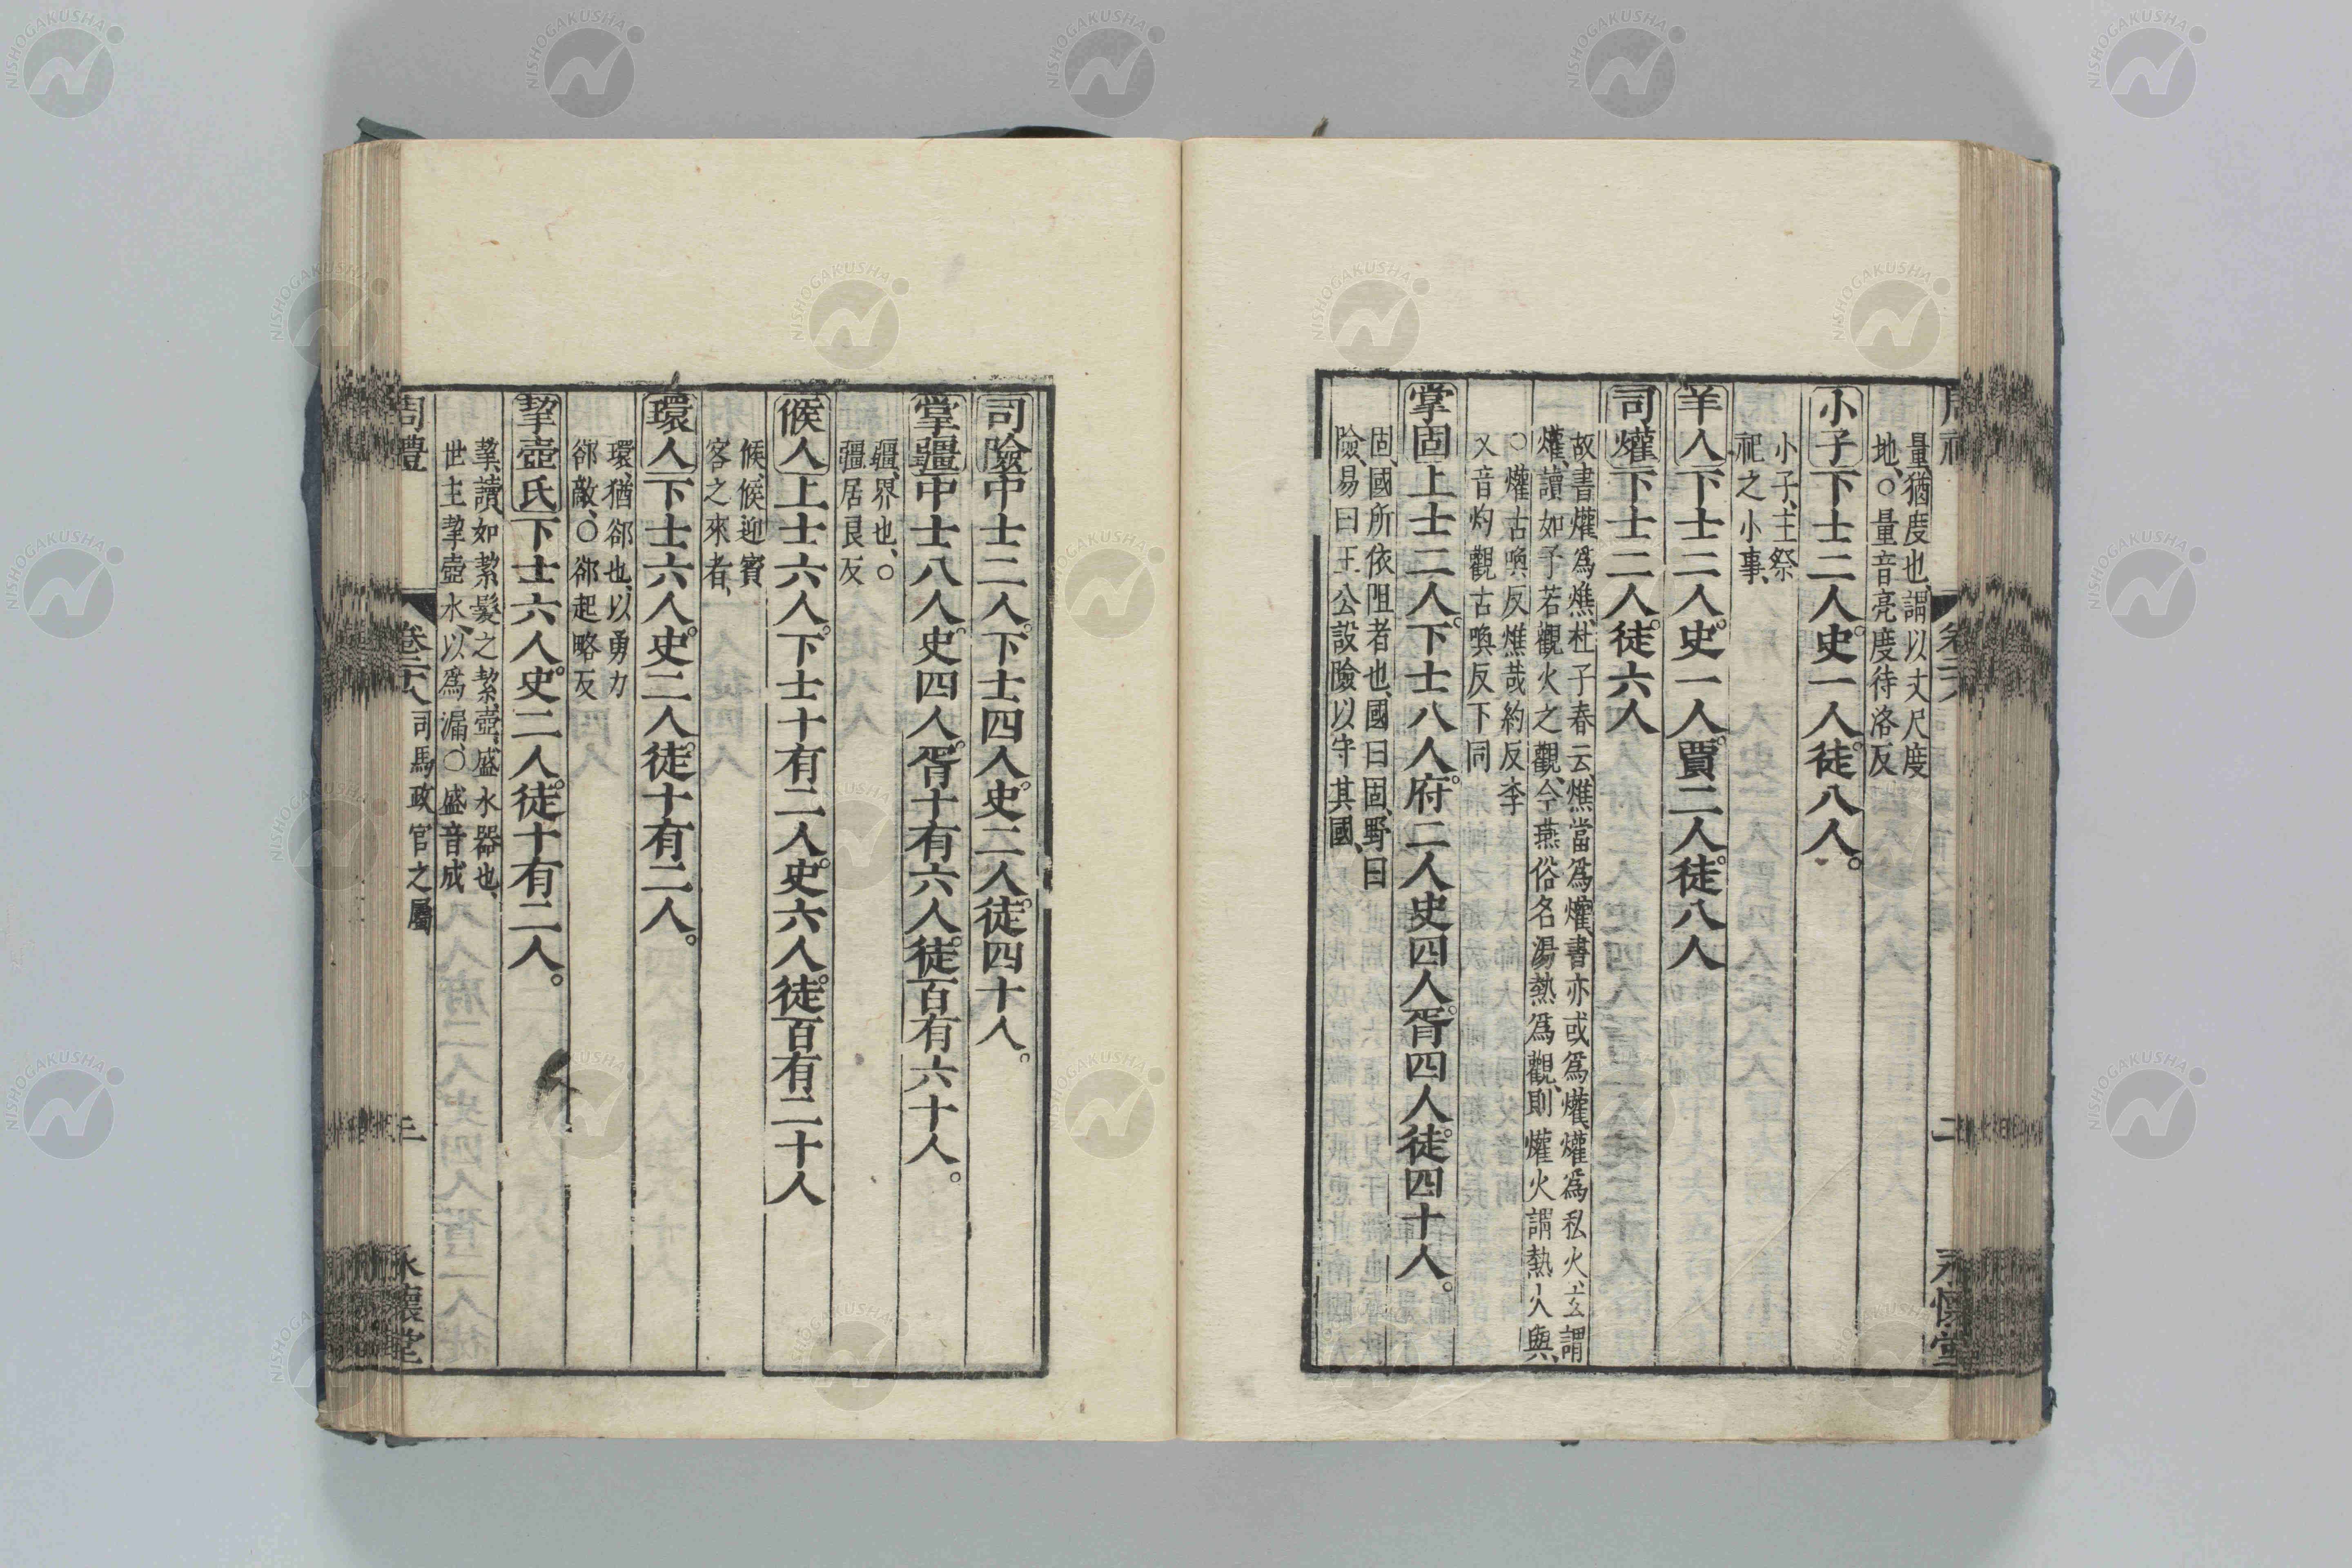 量猶度也、謂以丈尺度
地、○量音亮度待洛反
小子下士二人。史一人。徒八人。
小子、主祭
祀之小事、
羊人下士二人。史一人。賈二人。徒八人
司爟下士二人。徒六人
故書爟爲燋、杜子春云、燋當爲爟、書亦或爲爟、爟爲私火、玄謂
爟、讀如予若觀火之觀、今燕俗名湯熱爲觀、則爟火謂熱火與、
○爟古喚反燋哉約反李
又音灼觀古喚反下同
掌固上士二人。下士八人。府二人史四人。胥四人。徒四十人。
固、國所依阻者也、國曰固、野曰
險、易曰王公設險以守其國、
司險中士二人。下士四人。史二人。徒四十人。
掌疆中士八人。史四人。胥十有六人。徒百有六十人。
疆、界也、○
疆居良反
候人上士六人。下士十有二人。史六人。徒百有二十人
候、候迎賓
客之來者、
環人下士六人。史二人。徒十有二人。
環猶郤也、以勇力
郤敵、○郤起略反
挈壺氏下士六人。史二人。徒十有二人。
挈、讀如絜髮之絜、壺、盛水器也、
世主挈壺水、以爲漏、○盛音成
周禮 卷二十八 司馬政官之屬 三 永懷堂